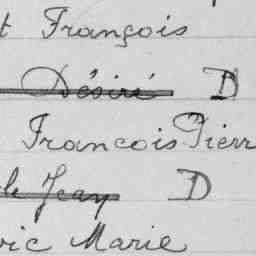 t François
Désiré D
Francois Pierr
le Jean D
vic Marie